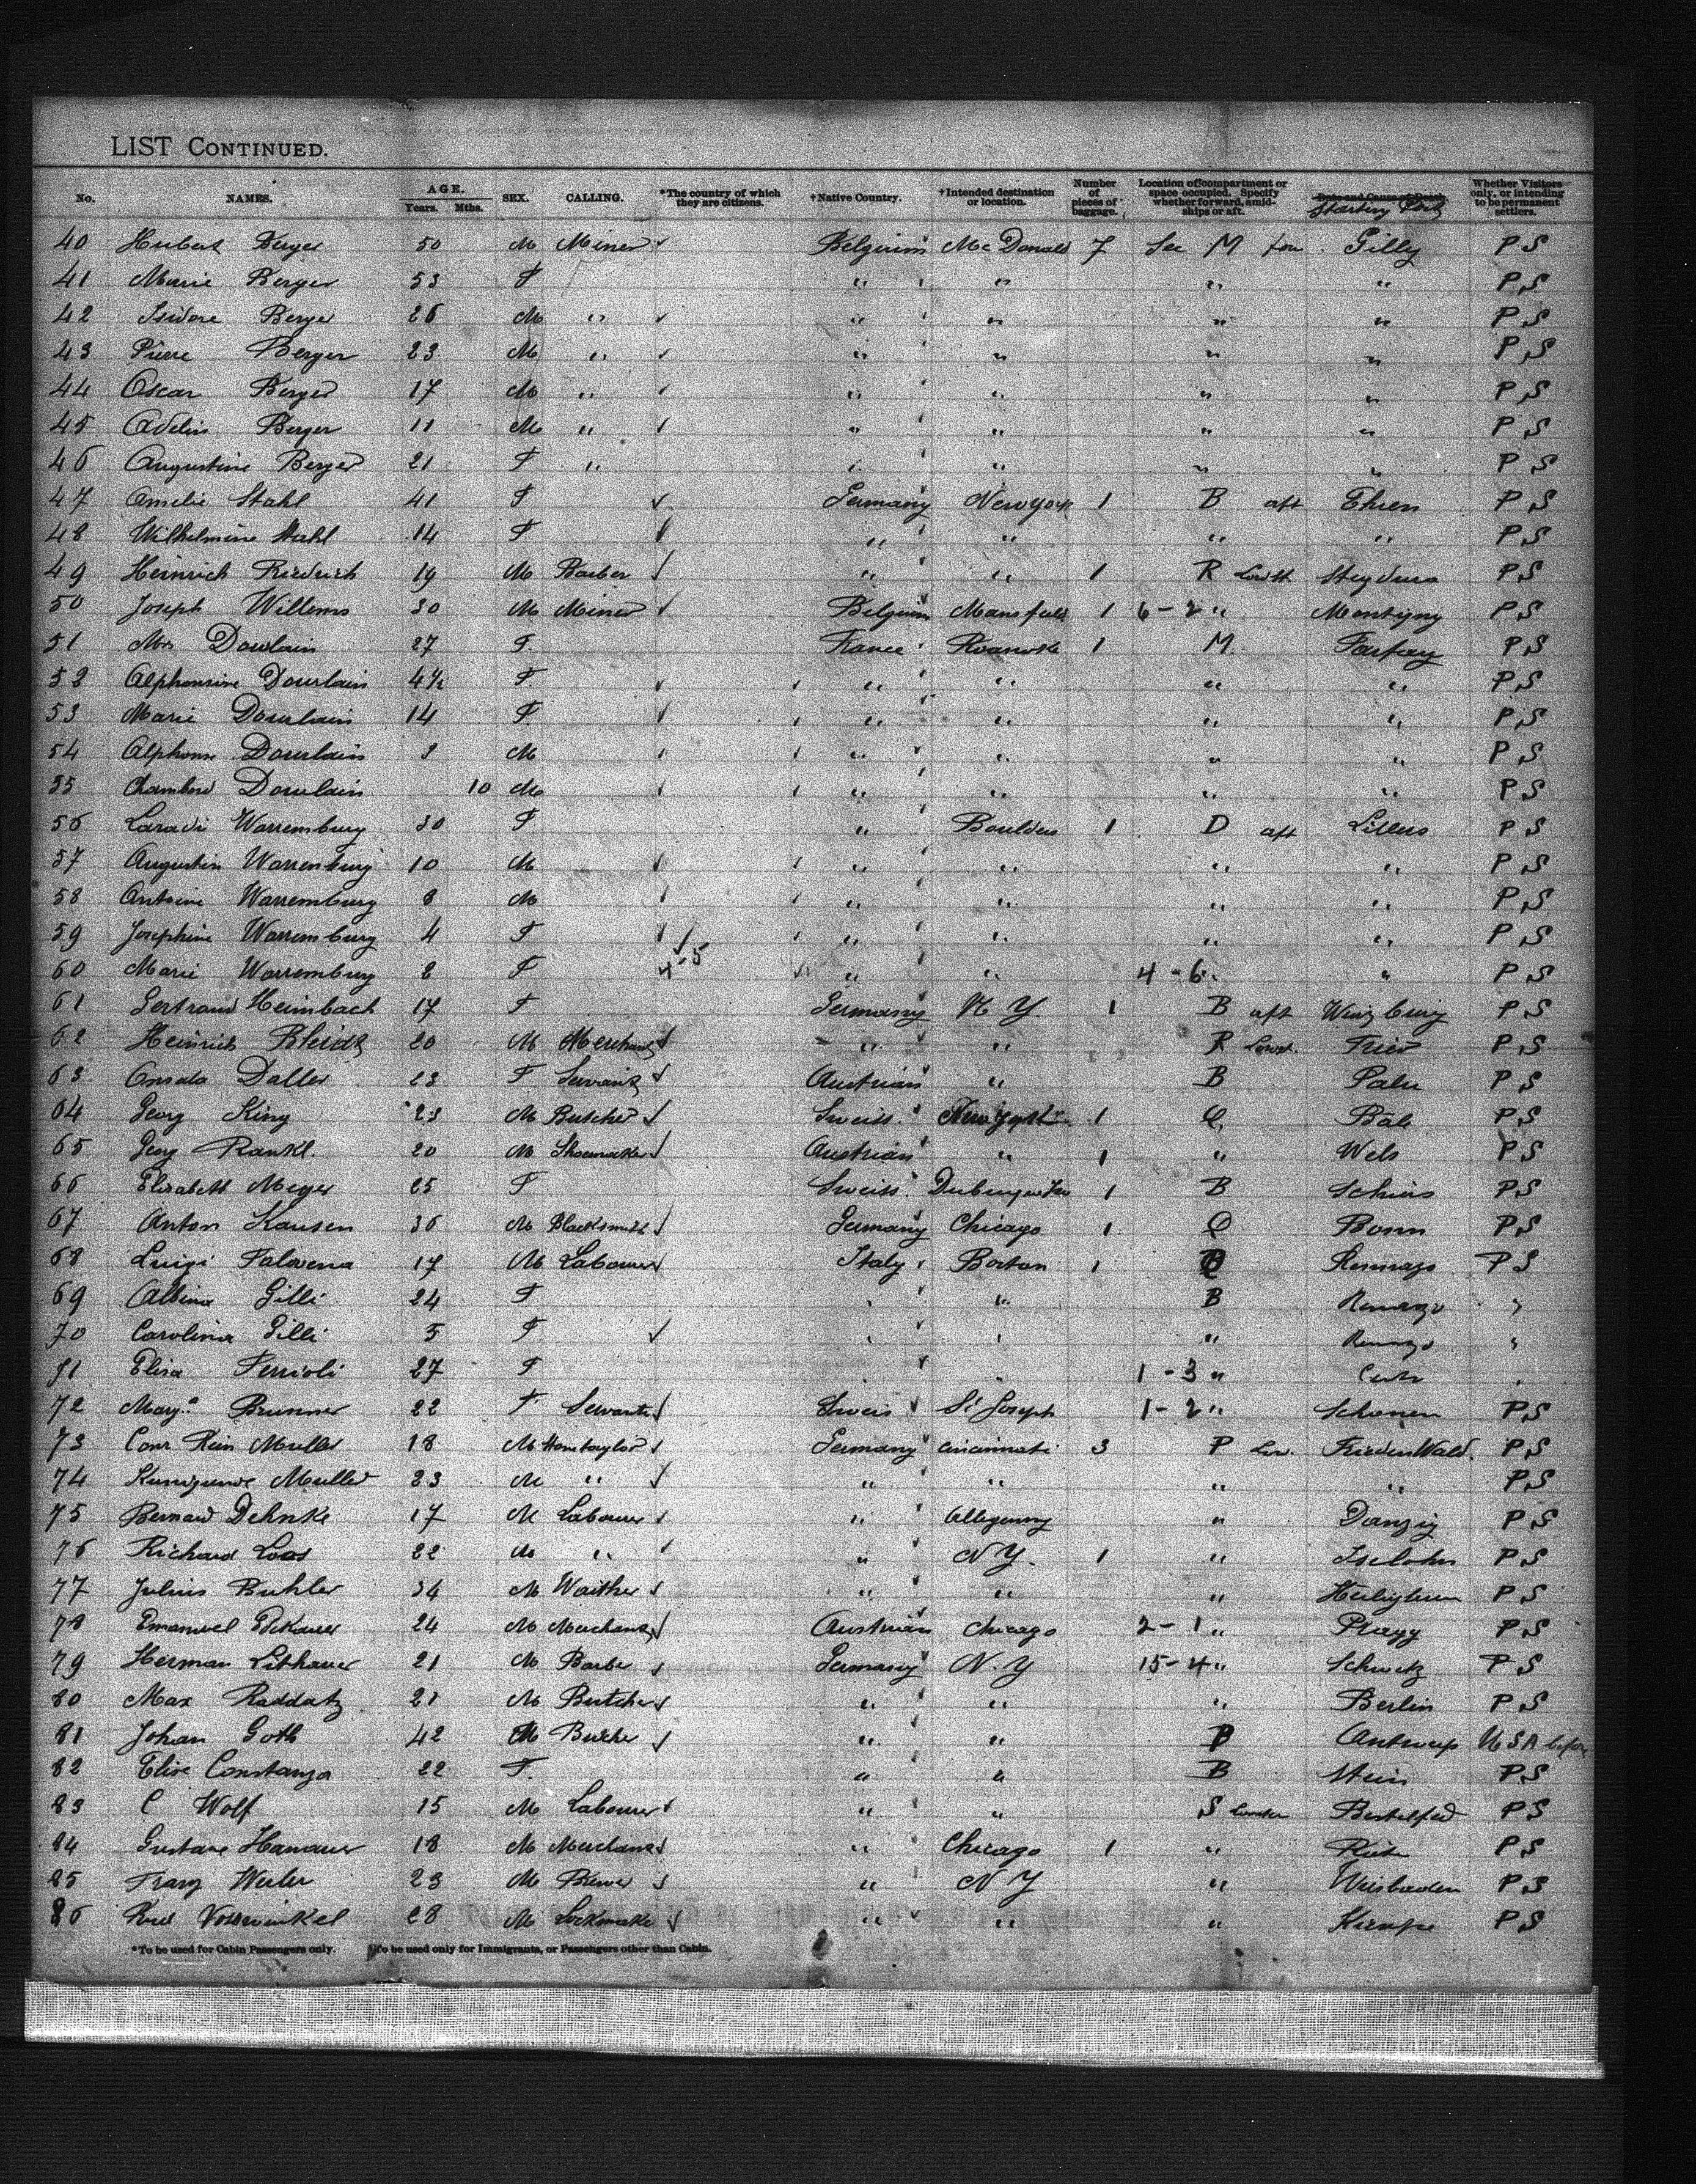 LIST CONTINUED.
No. NAMES. AGE. Years. Mths. SEX. CALLING. *The country of which they are citizens. †Native Country. †Intended destination or location. Number of pieces of baggage. Location of compartment or space occupied. Specify whether forward, amidships or aft. Starting Whether Visitors only, or intending to be permanent settlers.
40 Hubert Berger 50 M Miner Belgium Mc Donald 7 Sec M for Gilly P S
41 Marie Berger 53 F " " " " P S
42 Isidore Berger 26 M " " " " " P S
43 Pierre Berger 23 M " " " " " P S
44 Oscar Berger 17 M " " " " " P S
45 Adelin Berger 11 M " " " " " P S
46 Augustine Berger 21 F " " " " " P S
47 Amelie Stahl 41 F Germany New York 1 B aft Ehren P S
48 Wilhelmine Stahl 14 F " " " " P S
49 Heinrich Riedrich 19 M Barber " " 1 R P S
50 Joseph Willems 30 M Miner Belgium Mansfield 1 6-2 " Montigny P S
51 Mrs Dourlain 27 F France Roanoke 1 M P S
52 Alphonsine Dourlain 4½ F " " " " P S
53 Marie Dourlain 14 F " " " " P S
54 Alphonse Dourlain M " " " " P S
55 Dourlain 10 M " " " " P S
56 Warremburg 30 F " Boulder 1 D aft Lillers P S
57 Augustin Warremburg 10 M " " " " P S
58 Antoine Warremburg 8 M " " " " P S
59 Josephine Warremburg 4 F " " " " P S
60 Marie Warremburg F 4-5 " " 4-6 " " P S
61 Heimbach 17 F Germany N Y 1 B aft P S
62 Heinrich 20 M Merchant " " R Trier P S
63 Daller 23 F Servant Austrian " B P S
64 Georg King 23 M Butcher Sweiss New York 1 Bale P S
65 Georg Rankl. 20 M Shoemaker Austrian " 1 " Wels P S
66 Elisabeth Meyer 25 F Sweiss 1 B Schiers P S
67 Anton Kausen 36 M Blacksmith Germany Chicago 1 Bonn P S
68 Luigi 17 M Labourer Italy Boston 1 P S
69 Albina Gilli 24 F " " B "
70 Carolina Gilli 5 F " " " "
71 Elisa Ferrioli 27 F " " 1-3 " "
72 Brunner 22 F Servant Sweis St Joseph 1-2 " P S
73 Muller 18 M Germany Cincinnati 3 P Low. FriedenWald. P S
74 Muller 23 M " " " " " P S
75 Bernard Dehnke 17 M Labourer " Allegenny " Danzig P S
76 Richard Loos 22 M " " N Y. 1 " Iselohn P S
77 Julius Buhler 34 M Waither " " " P S
78 Emanuel 24 M Merchant Austrian Chicago 2-1 " Pragg P S
79 Herman Lithauer 21 M Barber Germany N. Y 15-4 " Schwetz P S
80 Max Raddatz 21 M Butcher " " " Berlin P S
81 Johan Goth 42 M " " Antwerp U S A before
82 Elise Constanza 22 F. " " B Stein P S
83 C Wolf 15 M Labourer " " S P S
84 Gustave Hanauer 18 M Merchant " Chicago 1 " P S
85 Franz Weiler 23 M Brewer " N Y " Wiesbaden P S
86 Vosswinkel 28 M " " " P S
*To be used for Cabin Passengers only. †To be used only for Immigrants, or Passengers other than Cabin.